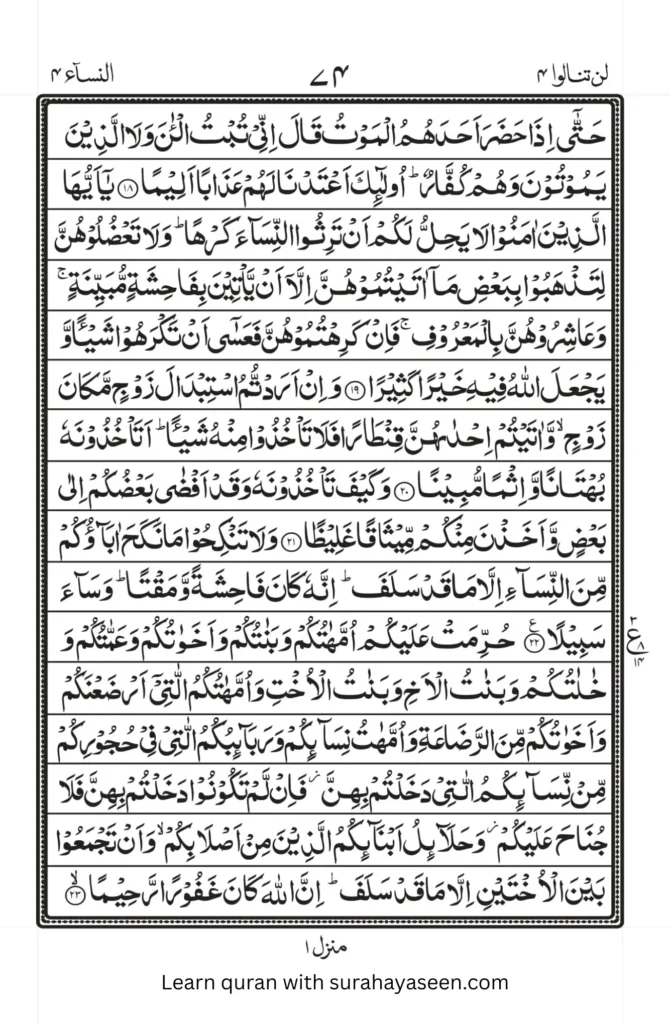 لن تنالوا ۴ ۷۴ النسآء ۴
حَتّٰۤی اِذَا حَضَرَ اَحَدَهُمُ الْمَوْتُ قَالَ اِنِّیْ تُبْتُ الْـٰٔنَ وَلَا الَّذِیْنَ
یَمُوْتُوْنَ وَهُمْ كُفَّارٌ ؕ اُولٰٓئِكَ اَعْتَدْنَا لَهُمْ عَذَابًا اَلِیْمًا ﴿۱۸﴾ یٰۤاَیُّهَا
الَّذِیْنَ اٰمَنُوْا لَا یَحِلُّ لَكُمْ اَنْ تَرِثُوا النِّسَآءَ كَرْهًا ؕ وَلَا تَعْضُلُوْهُنَّ
لِتَذْهَبُوْا بِبَعْضِ مَاۤ اٰتَیْتُمُوْهُنَّ اِلَّاۤ اَنْ یَّاْتِیْنَ بِفَاحِشَةٍ مُّبَیِّنَةٍ ۚ
وَعَاشِرُوْهُنَّ بِالْمَعْرُوْفِ ۚ فَاِنْ كَرِهْتُمُوْهُنَّ فَعَسٰۤی اَنْ تَكْرَهُوْا شَیْـًٔا وَّ
یَجْعَلَ اللّٰهُ فِیْهِ خَیْرًا كَثِیْرًا ﴿۱۹﴾ وَاِنْ اَرَدْتُّمُ اسْتِبْدَالَ زَوْجٍ مَّكَانَ
زَوْجٍ ۙ وَّاٰتَیْتُمْ اِحْدٰىهُنَّ قِنْطَارًا فَلَا تَاْخُذُوْا مِنْهُ شَیْـًٔا ؕ اَتَاْخُذُوْنَهٗ
بُهْتَانًا وَّاِثْمًا مُّبِیْنًا ﴿۲۰﴾ وَكَیْفَ تَاْخُذُوْنَهٗ وَقَدْ اَفْضٰی بَعْضُكُمْ اِلٰی
بَعْضٍ وَّاَخَذْنَ مِنْكُمْ مِّیْثَاقًا غَلِیْظًا ﴿۲۱﴾ وَلَا تَنْكِحُوْا مَا نَكَحَ اٰبَآؤُكُمْ
مِّنَ النِّسَآءِ اِلَّا مَا قَدْ سَلَفَ ؕ اِنَّهٗ كَانَ فَاحِشَةً وَّمَقْتًا ؕ وَسَآءَ
سَبِیْلًا ﴿۲۲﴾ ع حُرِّمَتْ عَلَیْكُمْ اُمَّهٰتُكُمْ وَبَنٰتُكُمْ وَاَخَوٰتُكُمْ وَعَمّٰتُكُمْ وَ
۳ ع ۸ ۱۴
خٰلٰتُكُمْ وَبَنٰتُ الْاَخِ وَبَنٰتُ الْاُخْتِ وَاُمَّهٰتُكُمُ الّٰتِیْۤ اَرْضَعْنَكُمْ
وَاَخَوٰتُكُمْ مِّنَ الرَّضَاعَةِ وَاُمَّهٰتُ نِسَآئِكُمْ وَرَبَآئِبُكُمُ الّٰتِیْ فِیْ حُجُوْرِكُمْ
مِّنْ نِّسَآئِكُمُ الّٰتِیْ دَخَلْتُمْ بِهِنَّ ؗ فَاِنْ لَّمْ تَكُوْنُوْا دَخَلْتُمْ بِهِنَّ فَلَا
جُنَاحَ عَلَیْكُمْ ؗ وَحَلَآئِلُ اَبْنَآئِكُمُ الَّذِیْنَ مِنْ اَصْلَابِكُمْ ۙ وَاَنْ تَجْمَعُوْا
بَیْنَ الْاُخْتَیْنِ اِلَّا مَا قَدْ سَلَفَ ؕ اِنَّ اللّٰهَ كَانَ غَفُوْرًا رَّحِیْمًا ﴿۲۳﴾ ۙ
منزل ۱
Learn quran with surahayaseen.com